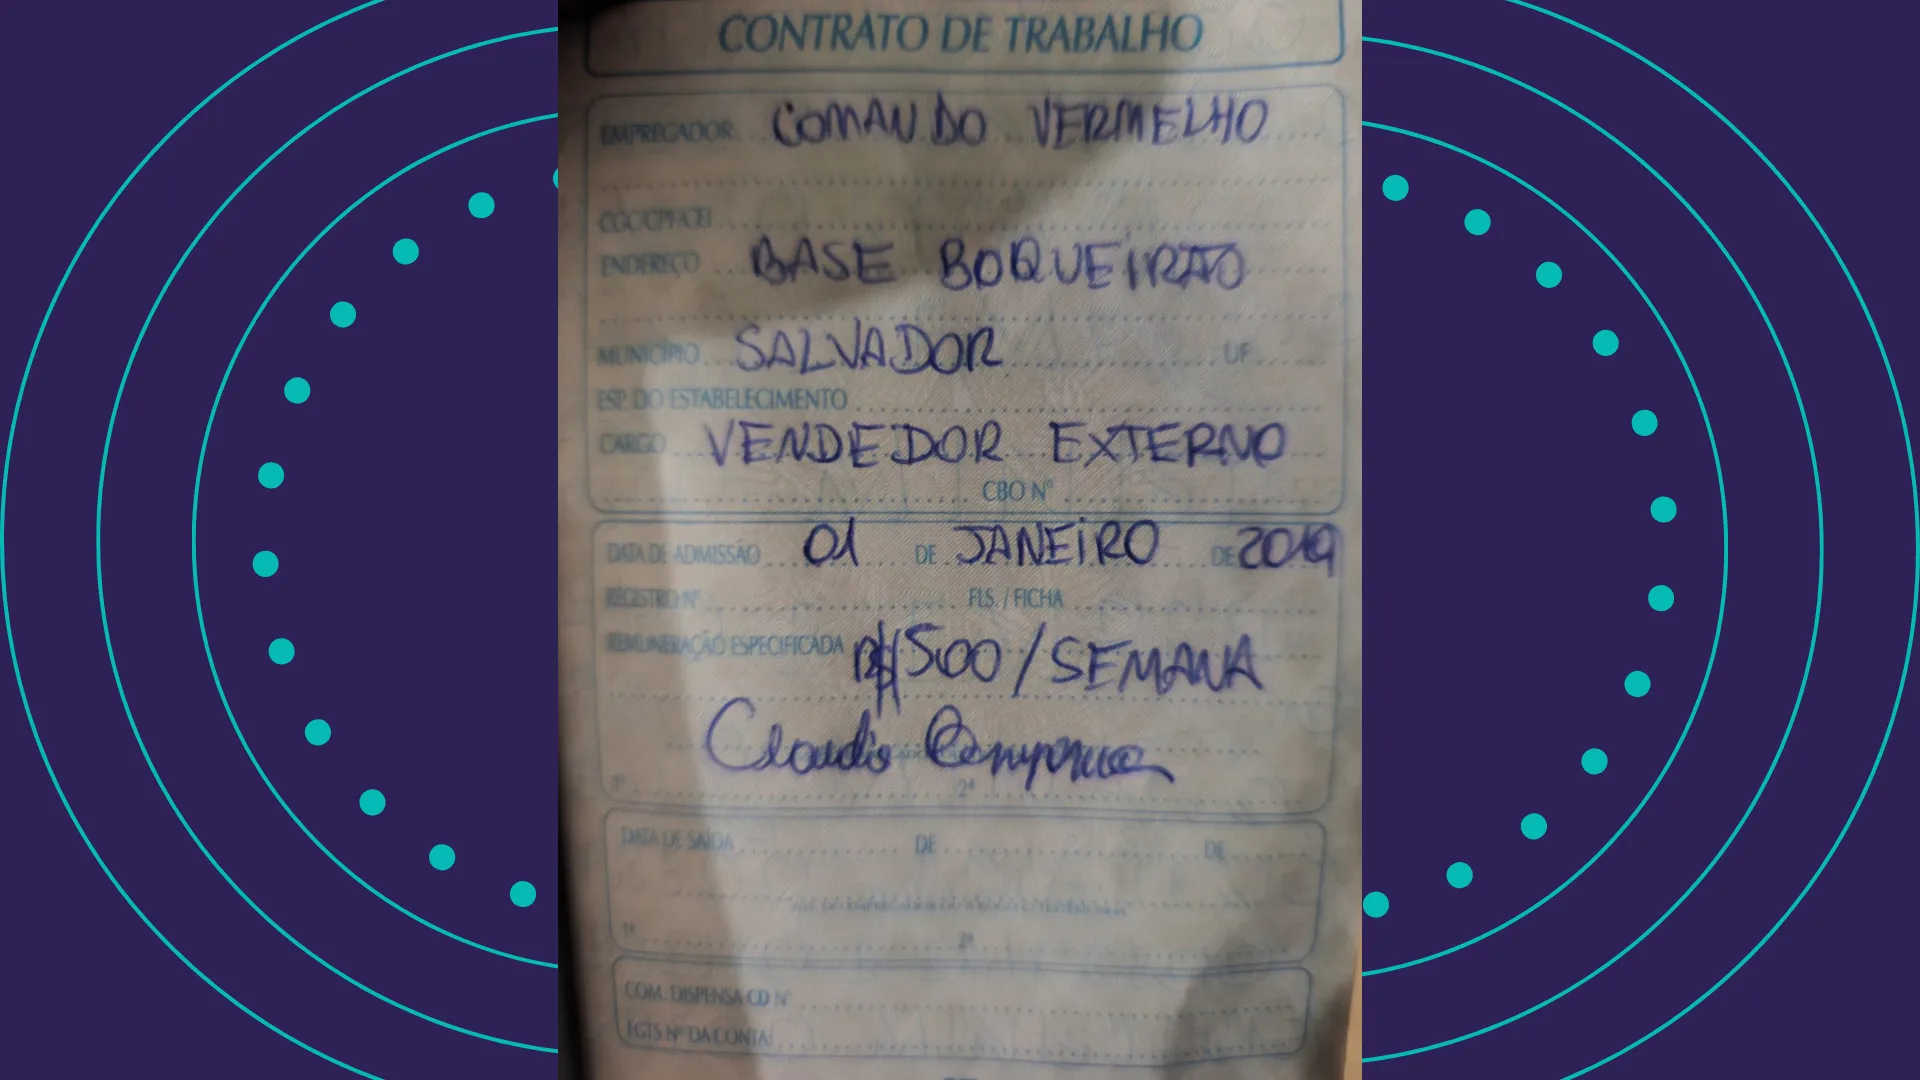 CONTRATO DE TRABALHO
EMPREGADOR COMANDO VERMELHO
CGC/CPF/CEI
ENDEREÇO BASE BOQUEIRÃO
MUNICÍPIO SALVADOR UF
ESP. DO ESTABELECIMENTO
CARGO VENDEDOR EXTERNO
CBO Nº
DATA DE ADMISSÃO 01 DE JANEIRO DE 2019
REGISTRO Nº FLS. / FICHA
REMUNERAÇÃO ESPECIFICADA R$ 500 / SEMANA
Claudio
1ª 2ª
DATA DE SAÍDA DE DE
1ª 2ª
COM. DISPENSA CD Nº
FGTS Nº DA CONTA: